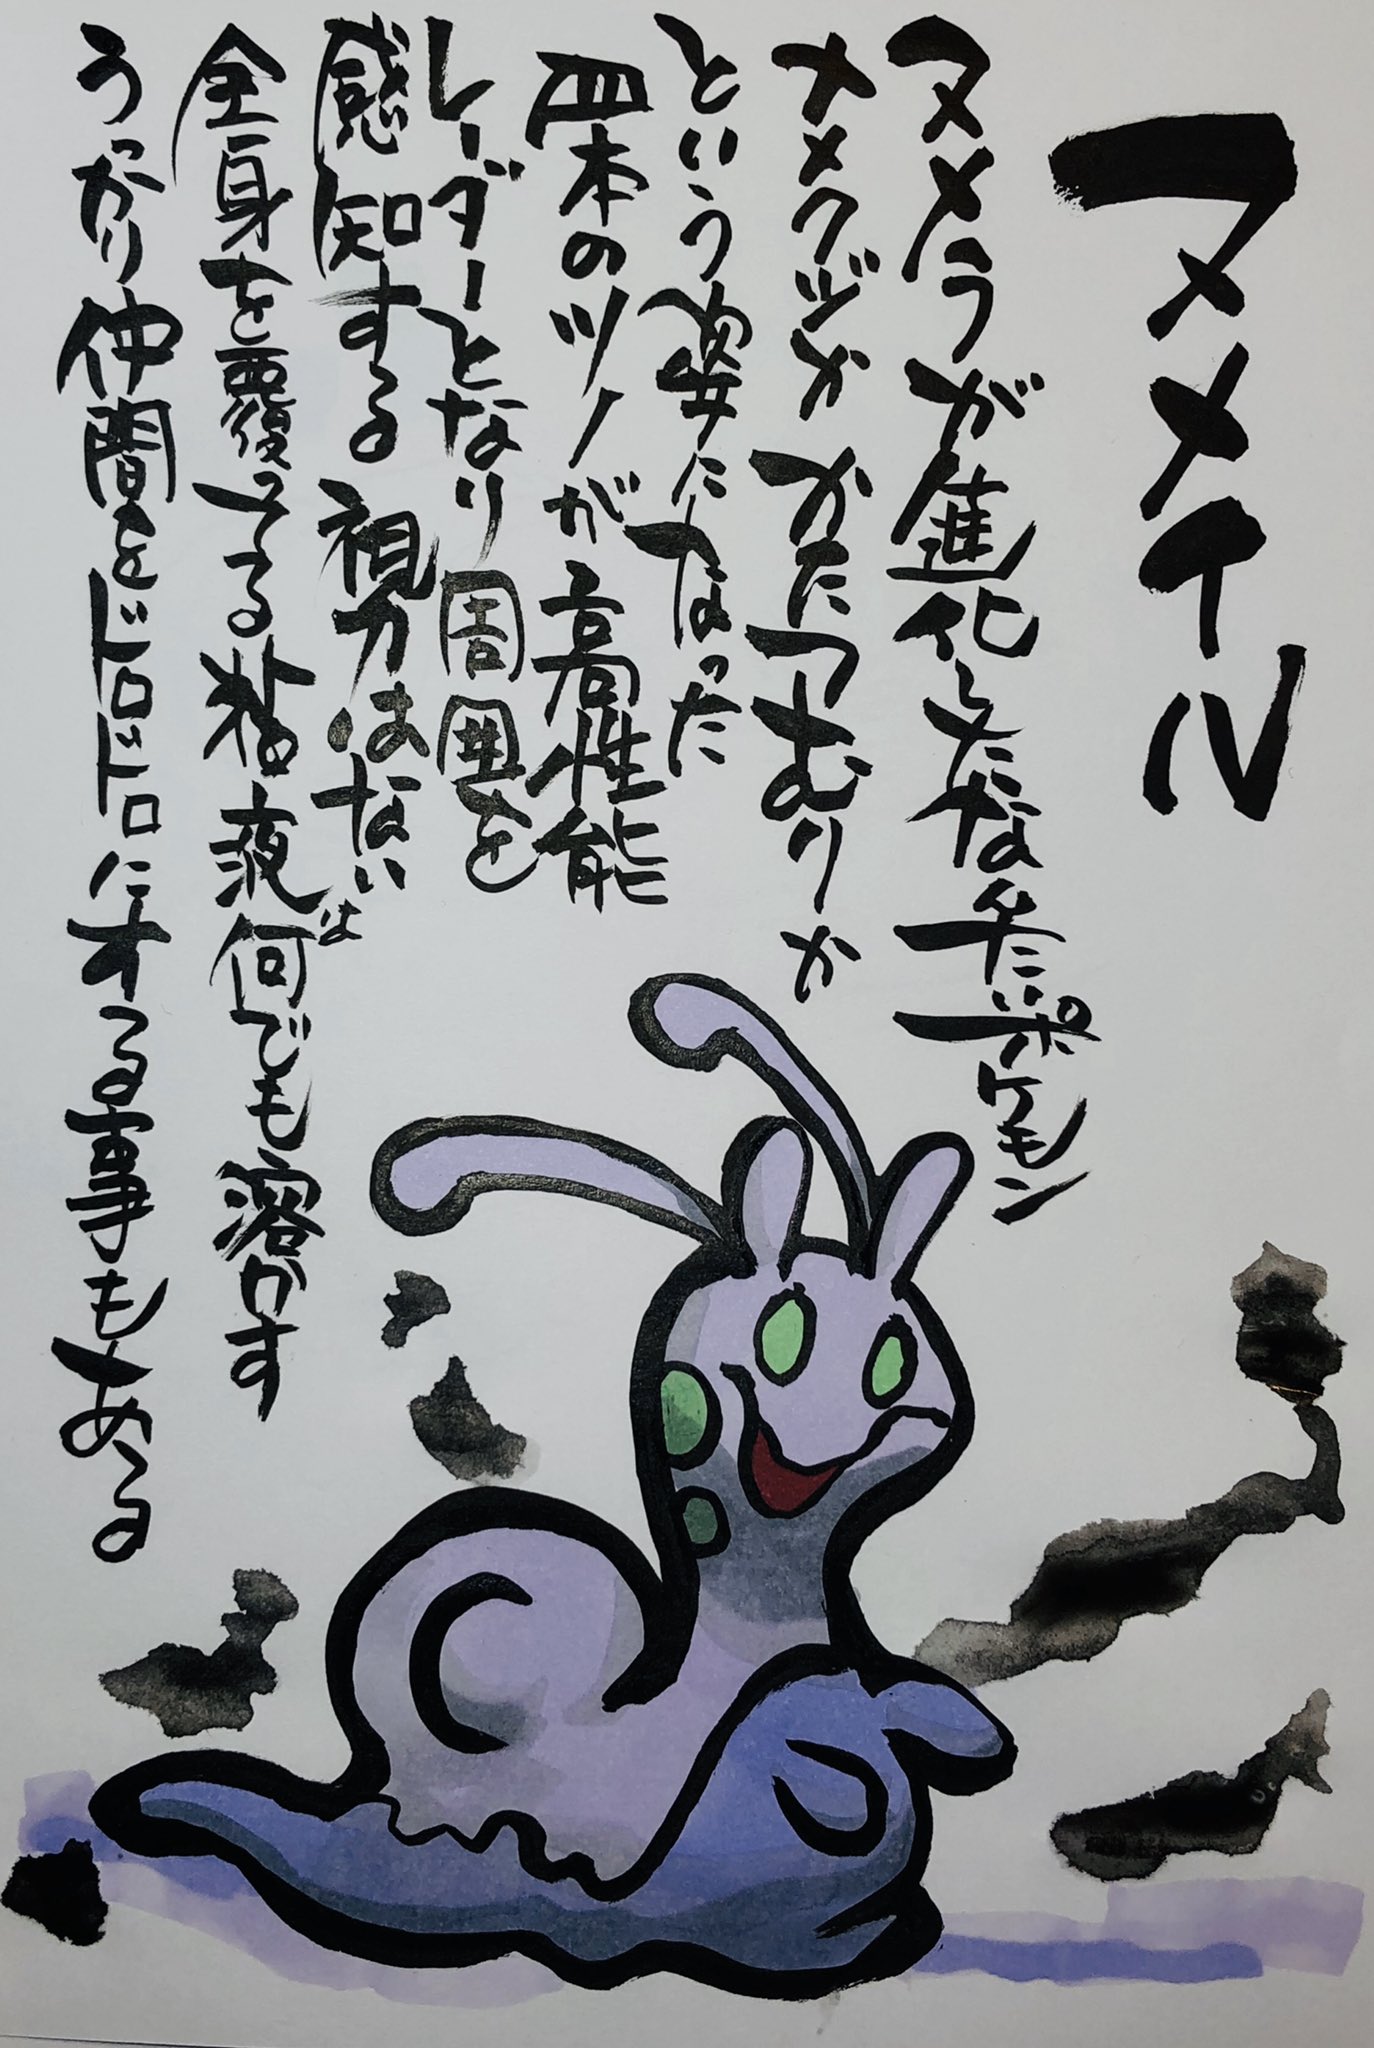 ヌメイル
ヌメラが進化したなんたいポケモン
ナメクジか かたつむりか
という姿になった
四本のツノが高性能
レーダーとなり周囲を
感知する 視力はない
全身を覆ってる粘液は何でも溶かす
うっかり仲間をドロドロにする事もある